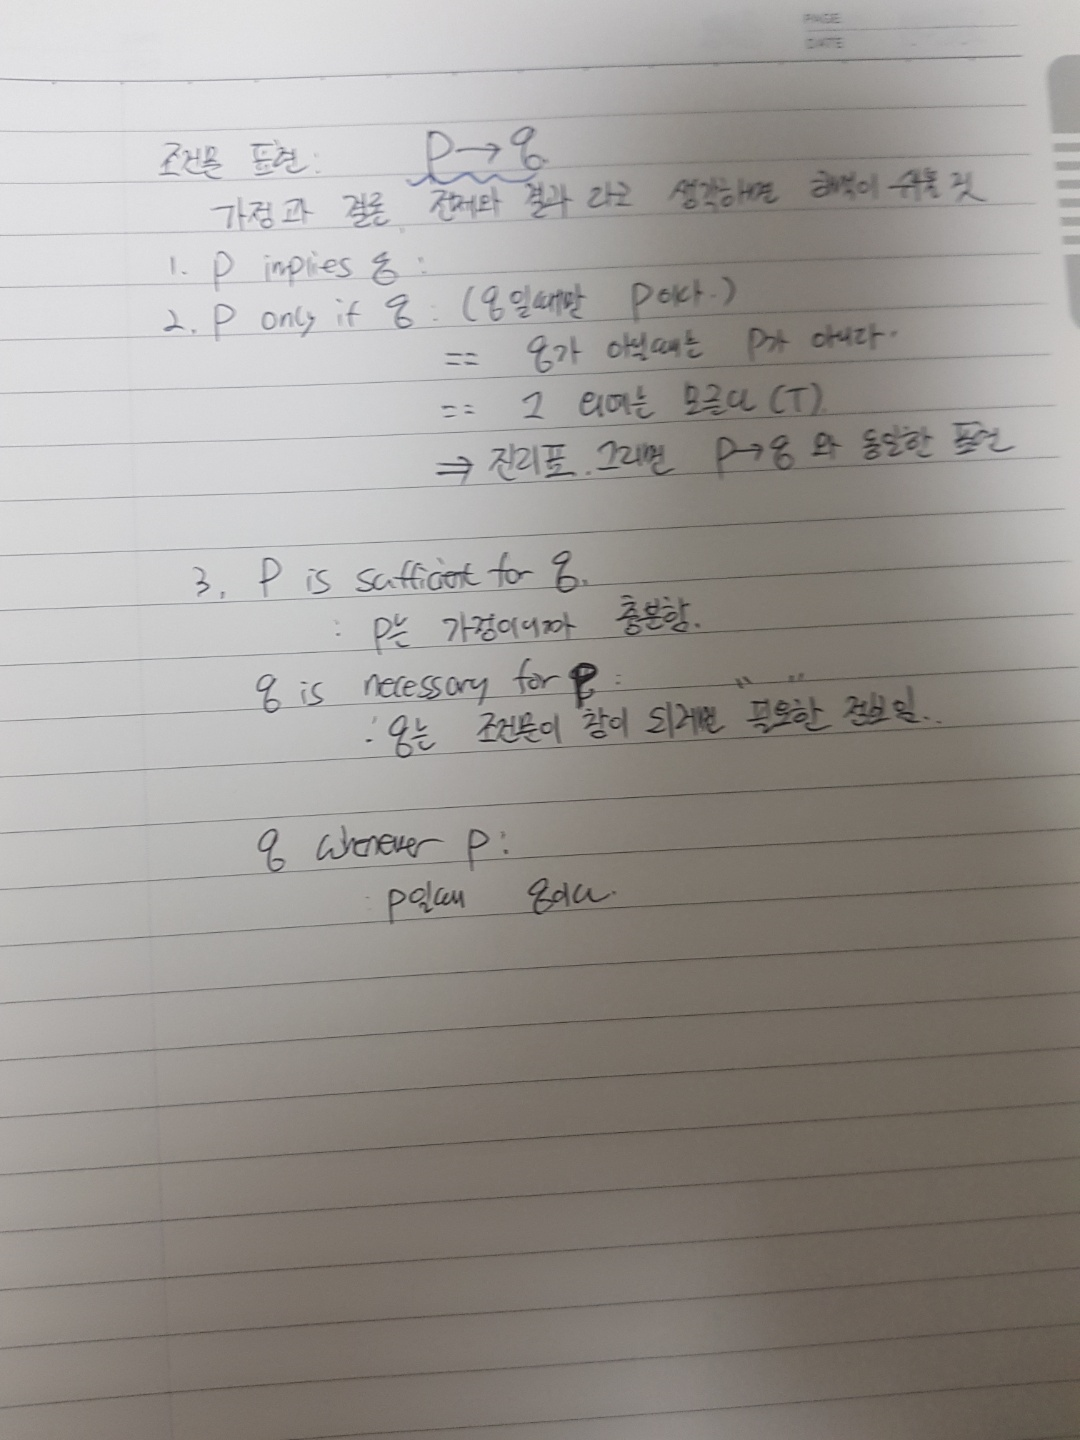 PAGE
DATE
조건문 표현: P→q
가정과 결론, 전제와 결과 라고 생각하면 해석이 쉬울 것
1. P implies q :
2. P only if q : (q일때만 P이다.)
== q가 아닐때는 P가 아니다.
== 그 외에는 모른다 (T)
⇒ 진리표 그리면 P→q 와 동일한 표현
3. P is sufficient for q.
: P는 가정이니까 충분함.
q is necessary for P : " "
: q는 조건문이 참이 되려면 필요한 정보임..
q whenever P :
: P일때 q이다.